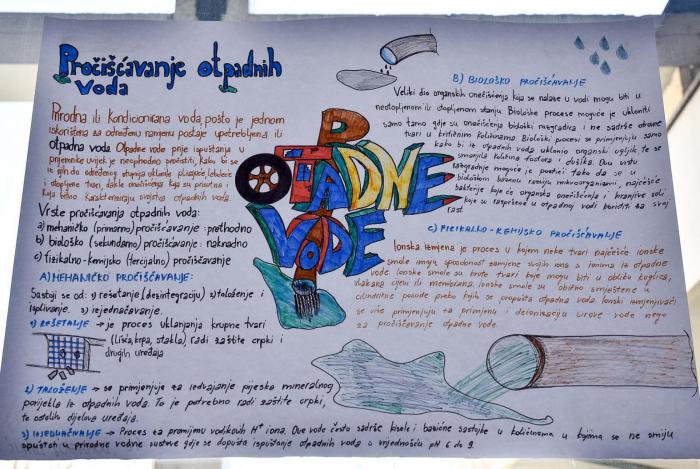 Pročišćavanje otpadnih
voda
Prirodna ili kondicionirana voda, pošto je jednom
iskorištena za određenu namjenu postaje upotrebljena ili
otpadna voda. Otpadne vode prije ispuštanja u
prijemnike uvijek je neophodno pročistiti, kako bi se
iz njih do određenog stupnja uklonile plivajuće, lebdeće
i otopljene tvari, dakle onečišćenja koja su prisutna i
koja bitno karakteriziraju svojstva otpadnih voda.
Vrste pročišćavanja otpadnih voda:
a) mehaničko (primarno) pročišćavanje: prethodno
b) biološko (sekundarno) pročišćavanje: naknadno
c) fizikalno-kemijsko (tercijalno) pročišćavanje
A) MEHANIČKO PROČIŠĆAVANJE:
Sastoji se od: 1) rešetanje (desintegraciju) 2) taloženje i
isplivanje. 3) izjednačavanje.
1) REŠETANJE -> je proces uklanjanja krupne tvari
(lišća, krpa, stakla), radi zaštite crpki i
drugih uređaja
2) TALOŽENJE -> se primjenjuje za izdvajanje pijeska mineralnog
porijekla iz otpadnih voda. To je potrebno radi zaštite crpki,
te ostalih dijelova uređaja.
3) IZJEDNAČAVANJE -> Proces za promjenu vodikovih H+ iona. Ove vode često sadrže kisele i bazične sastojke u količinama u kojima se ne smiju
opuštati u prirodne vodne sustave gdje se dopušta ispuštanje otpadnih voda s vrijednošću pH 6 do 9.
OTPADNE
VODE
B) BIOLOŠKO PROČIŠĆAVANJE
Veliki dio organskih onečišćenja koja se nalaze u vodi mogu biti u
neotopljenom ili otopljenom stanju. Biološke procese moguće je ukloniti
samo tamo gdje su onečišćenja biološki razgradiva i ne sadrže otrovne
tvari u kritičnim količinama. Biološki procesi se primjenjuju samo
kako bi iz otpadnih voda uklonio organski ugljik, te se
smanjila količina fosfora i dušika. Ovu vrstu
razgradnje moguće je postići tako da se u
biološkom bazenu razviju mikroorganizmi, najčešće
bakterije koje će organska onečišćenja i hranjive soli
koje su raspršene u otpadnoj vodi koristiti za svoj
rast.
C) FIZIKALNO-KEMIJSKO PROČIŠĆAVANJE
Ionska izmjena je proces u kojem neke tvari najčešće ionske
smole imaju sposobnost zamjene svojih iona s ionima iz otpadne
vode. Ionske smole su krute tvari koje mogu biti u obliku kuglica,
vlakana cijevi ili membrana. Ionske smole su obično smještene u
cilindrične posude preko kojih se propušta otpadna voda. Ionski izmjenjivači
se više primjenjuju za pripremu i deionizaciju sirove vode nego
za pročišćavanje otpadne vode.